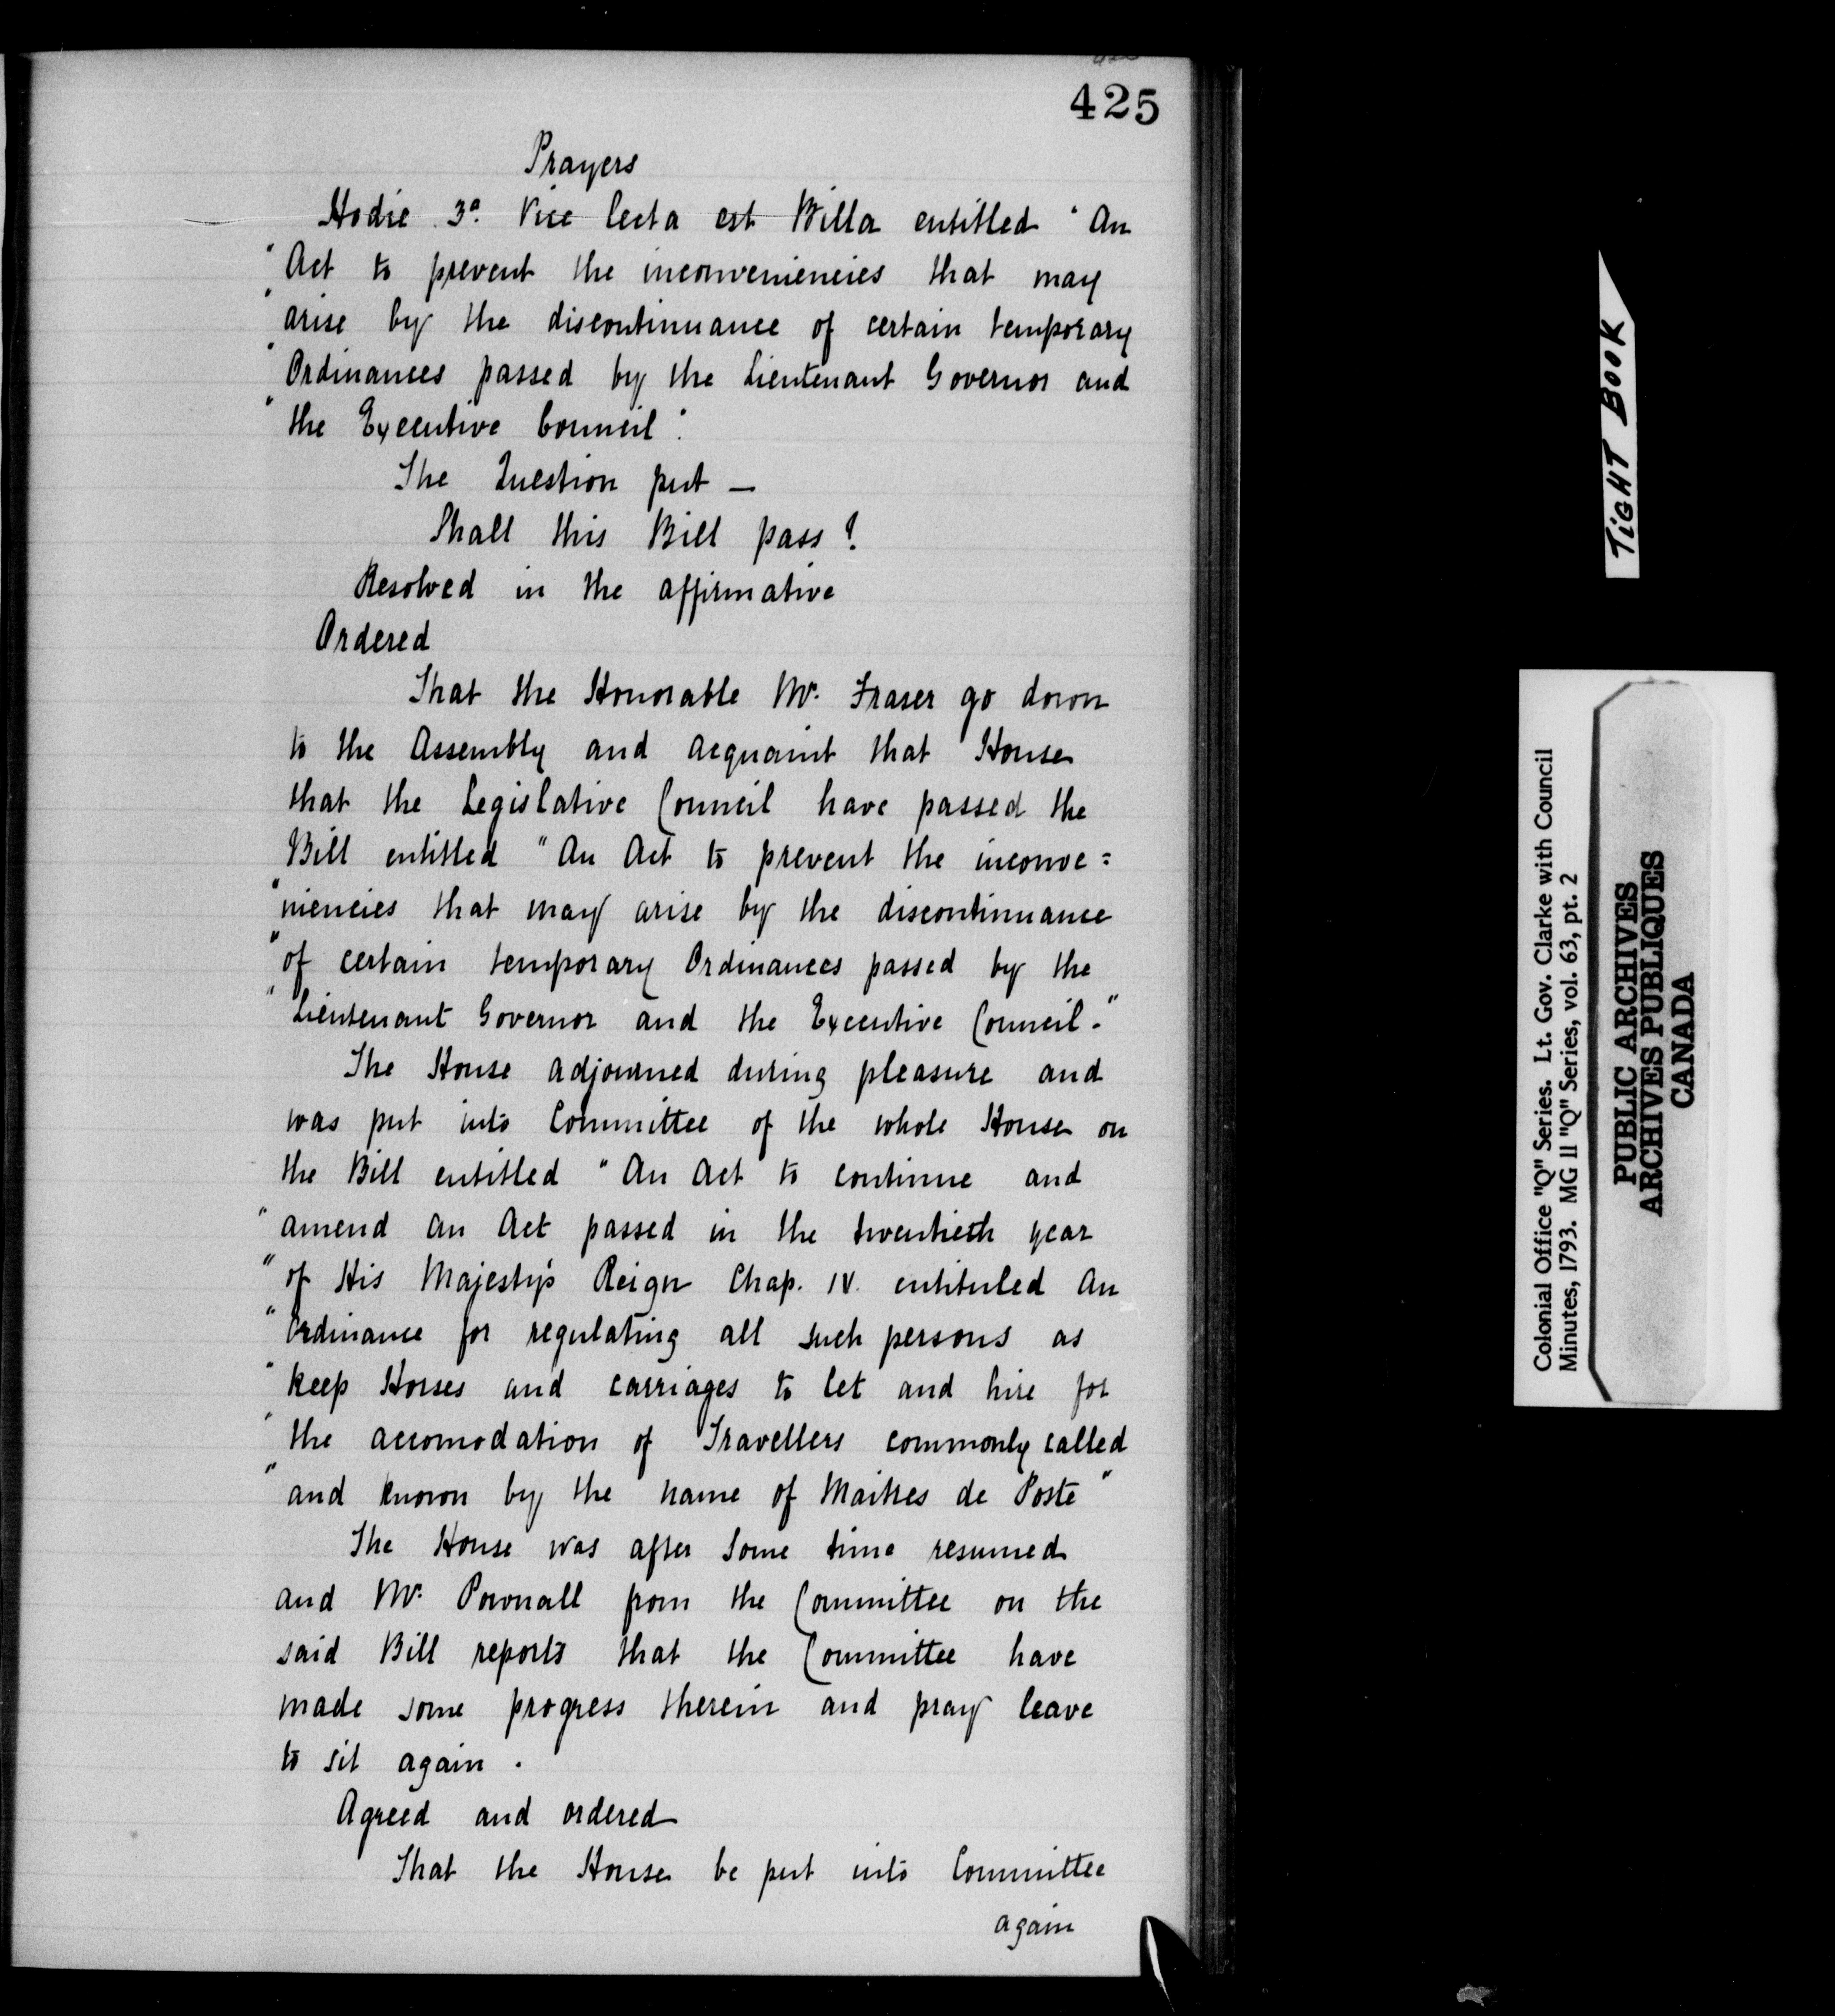 425
Prayers
Hodie 3ª. Vice lecta est Billa entitled "An
"Act to prevent the inconveniencies that may
"arise by the discontinuance of certain temporary
"Ordinances passed by the Lieutenant Governor and
"the Executive Council".
The Question put —
Shall this Bill pass?
Resolved in the affirmative
Ordered
That the Honorable Mr. Fraser go down
to the Assembly and acquaint that House
that the Legislative Council have passed the
Bill entitled "An Act to prevent the inconve=
"niencies that may arise by the discontinuance
"of certain temporary Ordinances passed by the
"Lieutenant Governor and the Executive Council."
The House adjourned during pleasure and
was put into Committee of the whole House on
the Bill entitled "An Act to continue and
"amend an Act passed in the twentieth year
"of His Majesty's Reign Chap. IV. entituled An
"Ordinance for regulating all such persons as
"keep Horses and carriages to let and hire for
"the accomodation of Travellers commonly called
"and known by the name of Maitres de Poste"
The House was after some time resumed
and Mr. Pownall from the Committee on the
said Bill reports that the Committee have
made some progress therein and pray leave
to sit again.
Agreed and ordered
That the House be put into Committee
again
TIGHT BOOK
Colonial Office "Q" Series. Lt. Gov. Clarke with Council
Minutes, 1793. MG 11 "Q" Series, vol. 63, pt. 2
PUBLIC ARCHIVES
ARCHIVES PUBLIQUES
CANADA